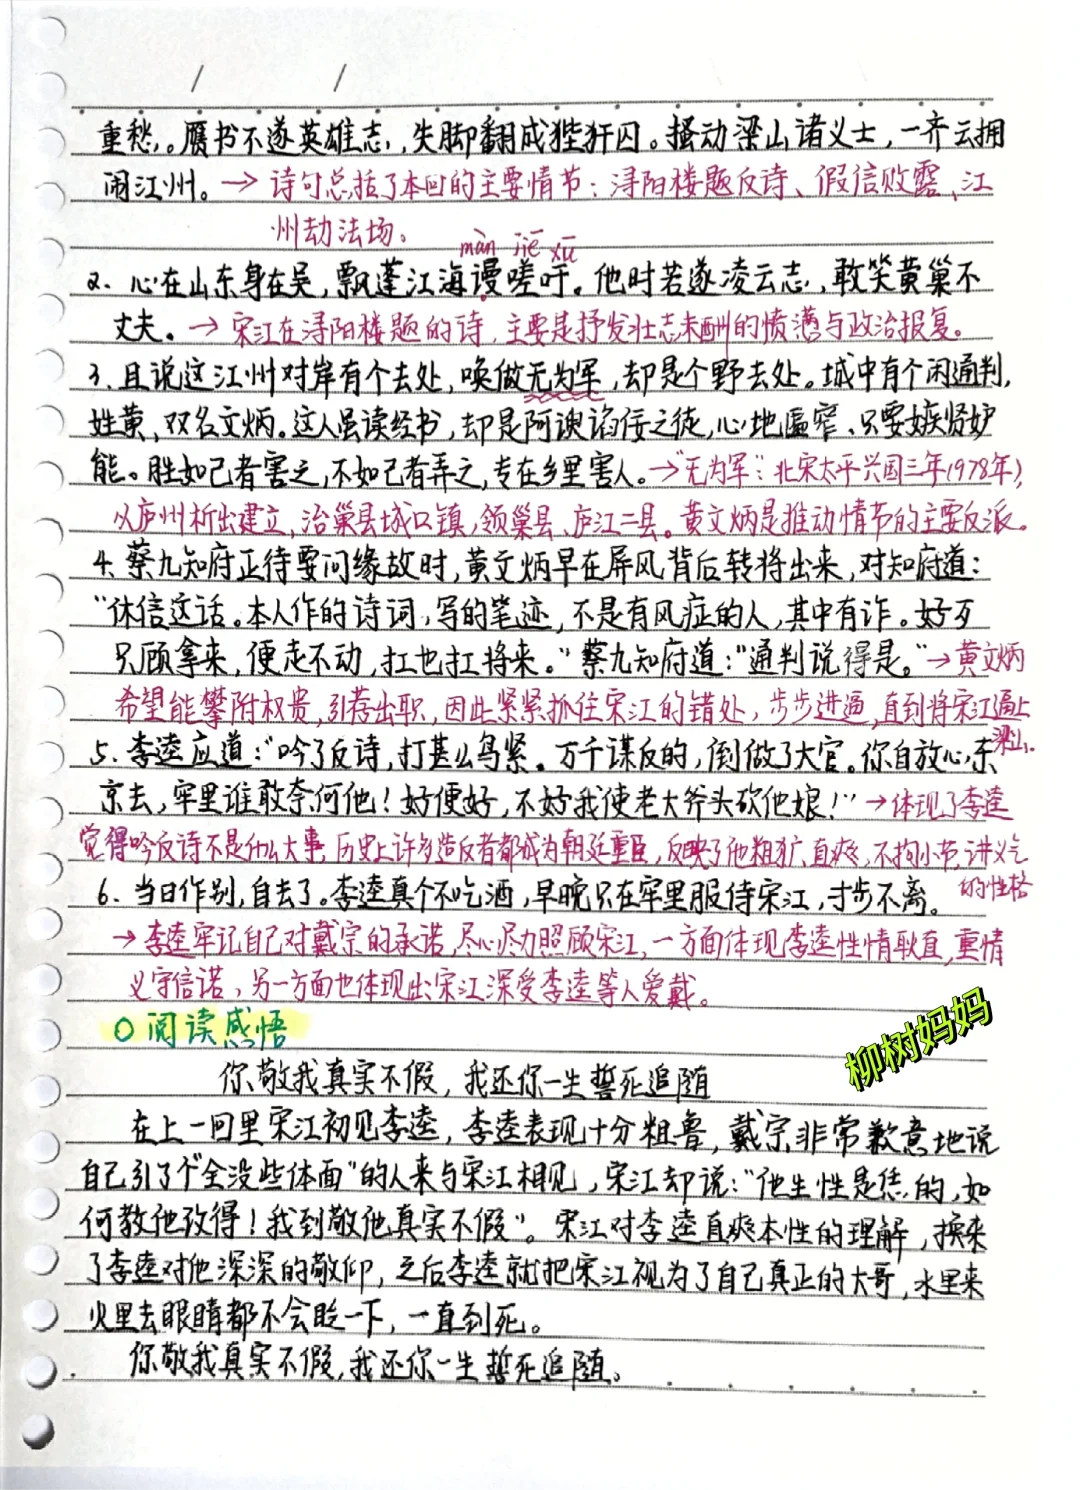 重愁。赝书不遂英雄志,失脚翻成狴犴囚。搔动梁山诸义士,一齐云拥
闹江州。→诗句总括了本回的主要情节:浔阳楼题反诗、假信败露、江
州劫法场。
màn jiē xū
2、心在山东身在吴,飘蓬江海谩嗟吁。他时若遂凌云志,敢笑黄巢不
丈夫。→宋江在浔阳楼题的诗,主要是抒发壮志未酬的愤懑与政治报复。
3、且说这江州对岸有个去处,唤做无为军,却是个野去处。城中有个闲通判,
姓黄,双名文炳。这人虽读经书,却是阿谀谄佞之徒,心地匾窄,只要嫉贤妒
能。胜如己者害之,不如己者弄之,专在乡里害人。→“无为军”:北宋太平兴国三年(978年),
从庐州析出建立,治巢县城口镇,领巢县、庐江二县。黄文炳是推动情节的主要反派。
4、蔡九知府正待要问缘故时,黄文炳早在屏风背后转将出来,对知府道:
“休信这话。本人作的诗词,写的笔迹,不是有风症的人,其中有诈。好歹
只顾拿来,便走不动,扛也扛将来。”蔡九知府道:“通判说得是。”→黄文炳
希望能攀附权贵,引荐出职,因此紧紧抓住宋江的错处,步步进逼,直到将宋江逼上
梁山。
5、李逵应道:“吟了反诗,打甚么鸟紧。万千谋反的,倒做了大官。你自放心东
京去,牢里谁敢奈何他!好便好,不好我使老大斧头砍他娘!”→体现了李逵
觉得吟反诗不是什么大事,历史上许多造反者都成为朝廷重臣,反映了他粗犷、直爽、不拘小节、讲义气
的性格
6、当日作别,自去了。李逵真个不吃酒,早晚只在牢里服侍宋江,寸步不离。
→李逵牢记自己对戴宗的承诺,尽心尽力照顾宋江,一方面体现李逵性情耿直,重情
义守信诺,另一方面也体现出宋江深受李逵等人爱戴。
○阅读感悟
柳树妈妈
你敬我真实不假,我还你一生誓死追随
在上一回里宋江初见李逵,李逵表现十分粗鲁,戴宗非常歉意地说
自己引了个“全没些体面”的人来与宋江相见,宋江却说:“他生性是恁的,如
何教他改得!我到敬他真实不假”。宋江对李逵直爽本性的理解,换来
了李逵对他深深的敬仰,之后李逵就把宋江视为了自己真正的大哥,水里来
火里去眼睛都不会眨一下,一直到死。
你敬我真实不假,我还你一生誓死追随。